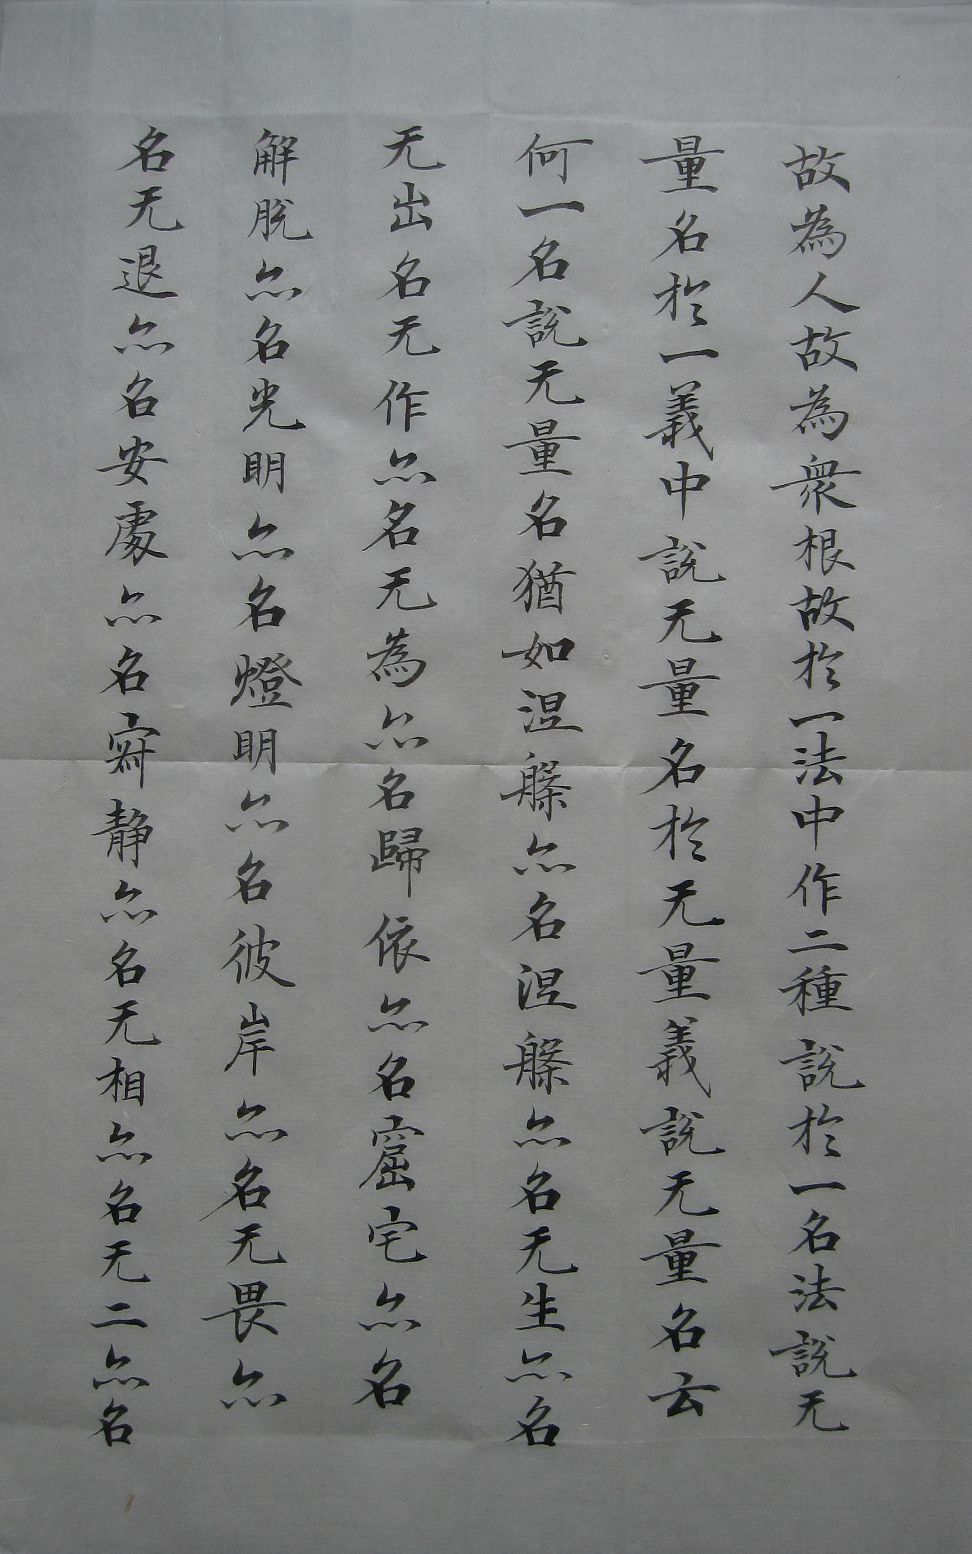 故為人故為衆根故於一法中作二種說於一名法說无
量名於一義中說无量名於无量義說无量名云
何一名說无量名猶如涅槃亦名涅槃亦名无生亦名
无出名无作亦名无為亦名歸依亦名窟宅亦名
解脫亦名光明亦名燈明亦名彼岸亦名无畏亦
名无退亦名安處亦名寂静亦名无相亦名无二亦名